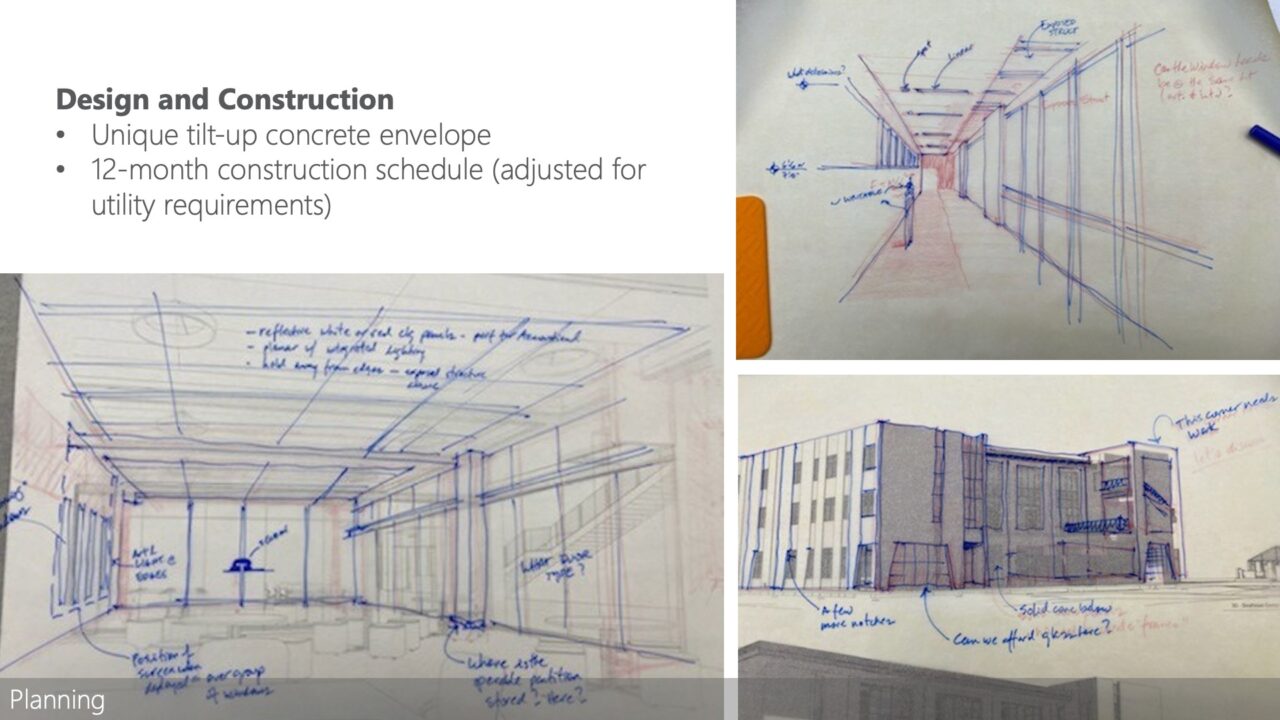 Design and Construction
• Unique tilt-up concrete envelope
• 12-month construction schedule (adjusted for
utility requirements)
what determines?
Linear
EXPOSED
STRUCT
Can the window heads
be @ the same ht
- reflective white or red clg panels - perf for Acoustical
- planar w/ integrated lighting
- hold away from edges - exposed structure
above
screen
WHAT
TYPE?
LIGHT @
EDGES
Position of
over group
of windows
Where is the
operable partition
stored? Here?
This corner needs
work
A few
more notches
Can we afford glass here?
Solid conc below
Planning